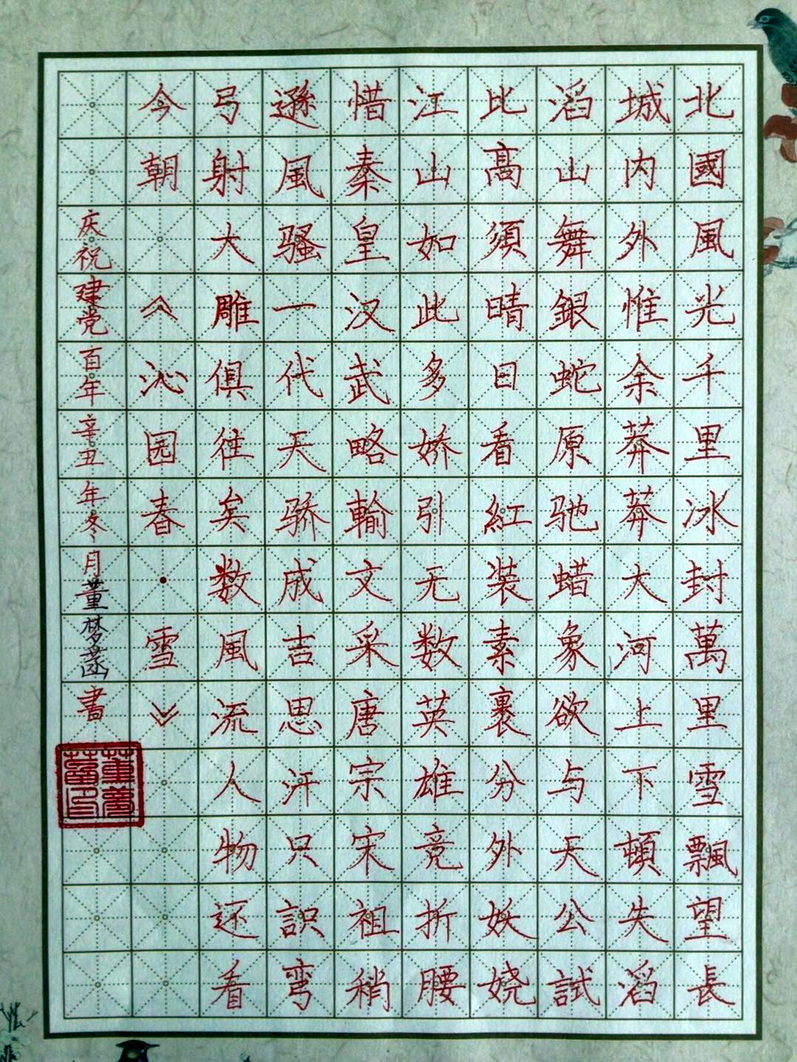 北國風光千里冰封萬里雪飄望長
城内外惟余莽莽大河上下頓失滔
滔山舞銀蛇原驰蜡象欲与天公試
比髙須晴日看紅装素裹分外妖娆
江山如此多娇引无数英雄竟折腰
惜秦皇汉武略輸文采唐宗宋祖稍
遜風骚一代天骄成吉思汗只識弯
弓射大雕俱往矣数風流人物还看
今朝《沁园春·雪》
庆祝建党百年辛丑年冬月董梦菡書